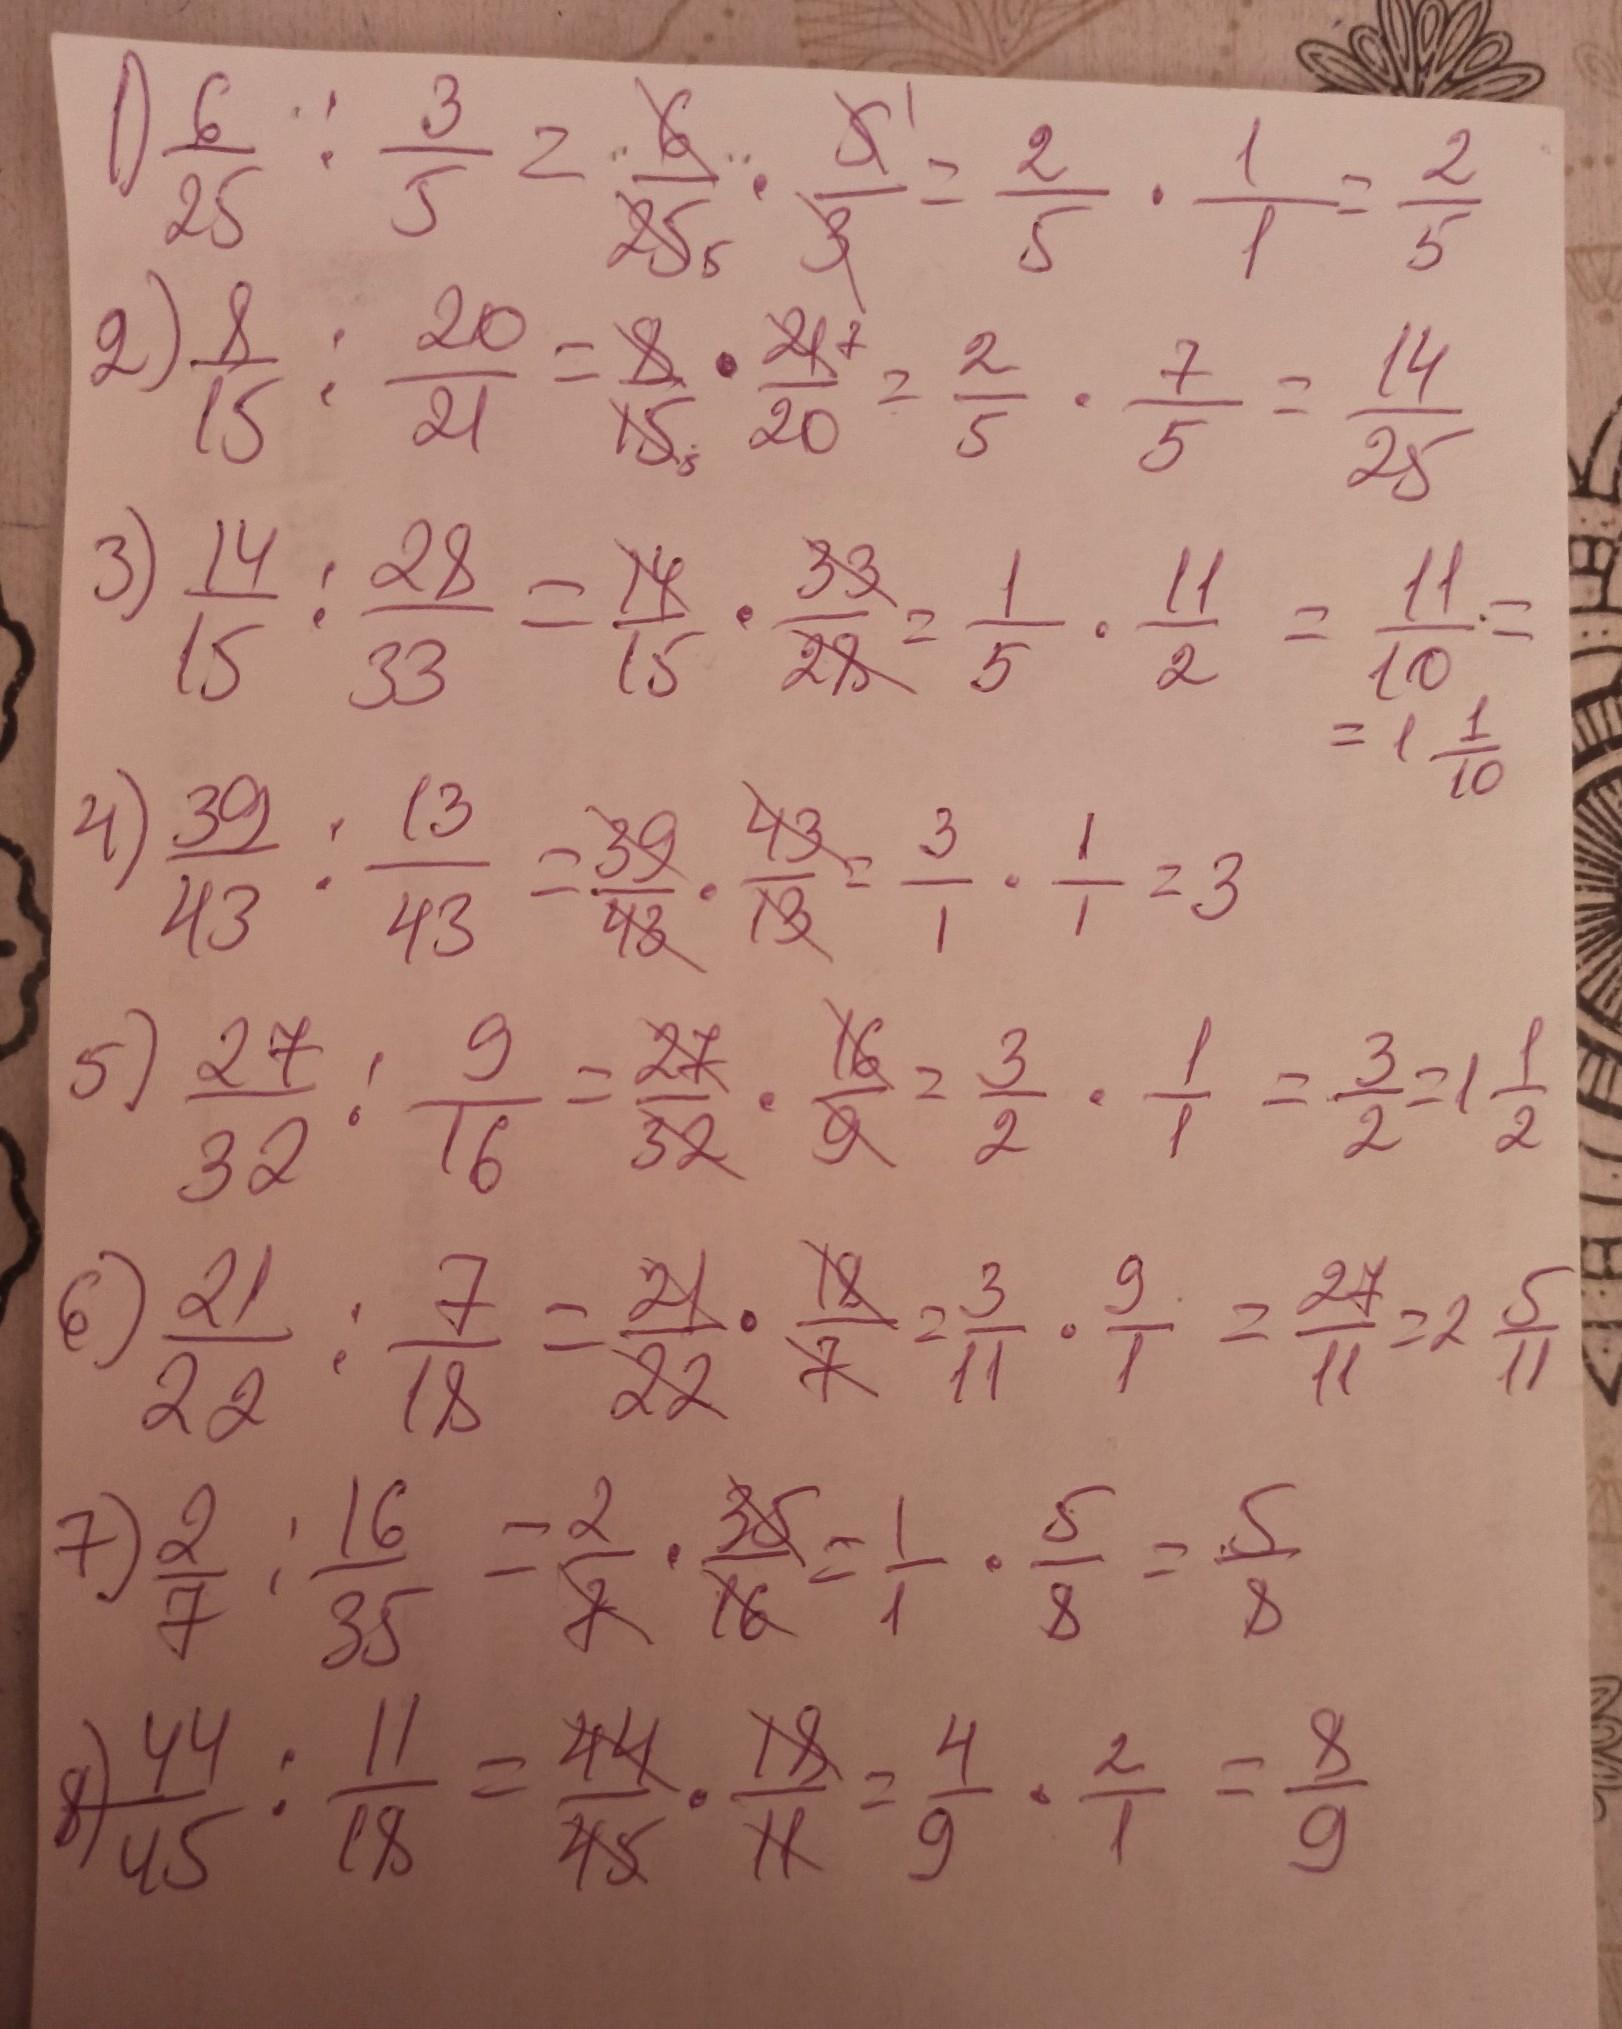 1) 6/25 : 3/5 = 6/25 5 · 5/3 1 = 2/5 · 1/1 = 2/5
2) 8/15 : 20/21 = 8/15 5 · 21/20 7 = 2/5 · 7/5 = 14/25
3) 14/15 : 28/33 = 14/15 · 33/28 = 1/5 · 11/2 = 11/10 =
= 1 1/10
4) 39/43 : 13/43 = 39/43 · 43/13 = 3/1 · 1/1 = 3
5) 27/32 : 9/16 = 27/32 · 16/9 = 3/2 · 1/1 = 3/2 = 1 1/2
6) 21/22 : 7/18 = 21/22 · 18/7 = 3/11 · 9/1 = 27/11 = 2 5/11
7) 2/7 : 16/35 = 2/7 · 35/16 = 1/1 · 5/8 = 5/8
8) 44/45 : 11/18 = 44/45 · 18/11 = 4/9 · 2/1 = 8/9